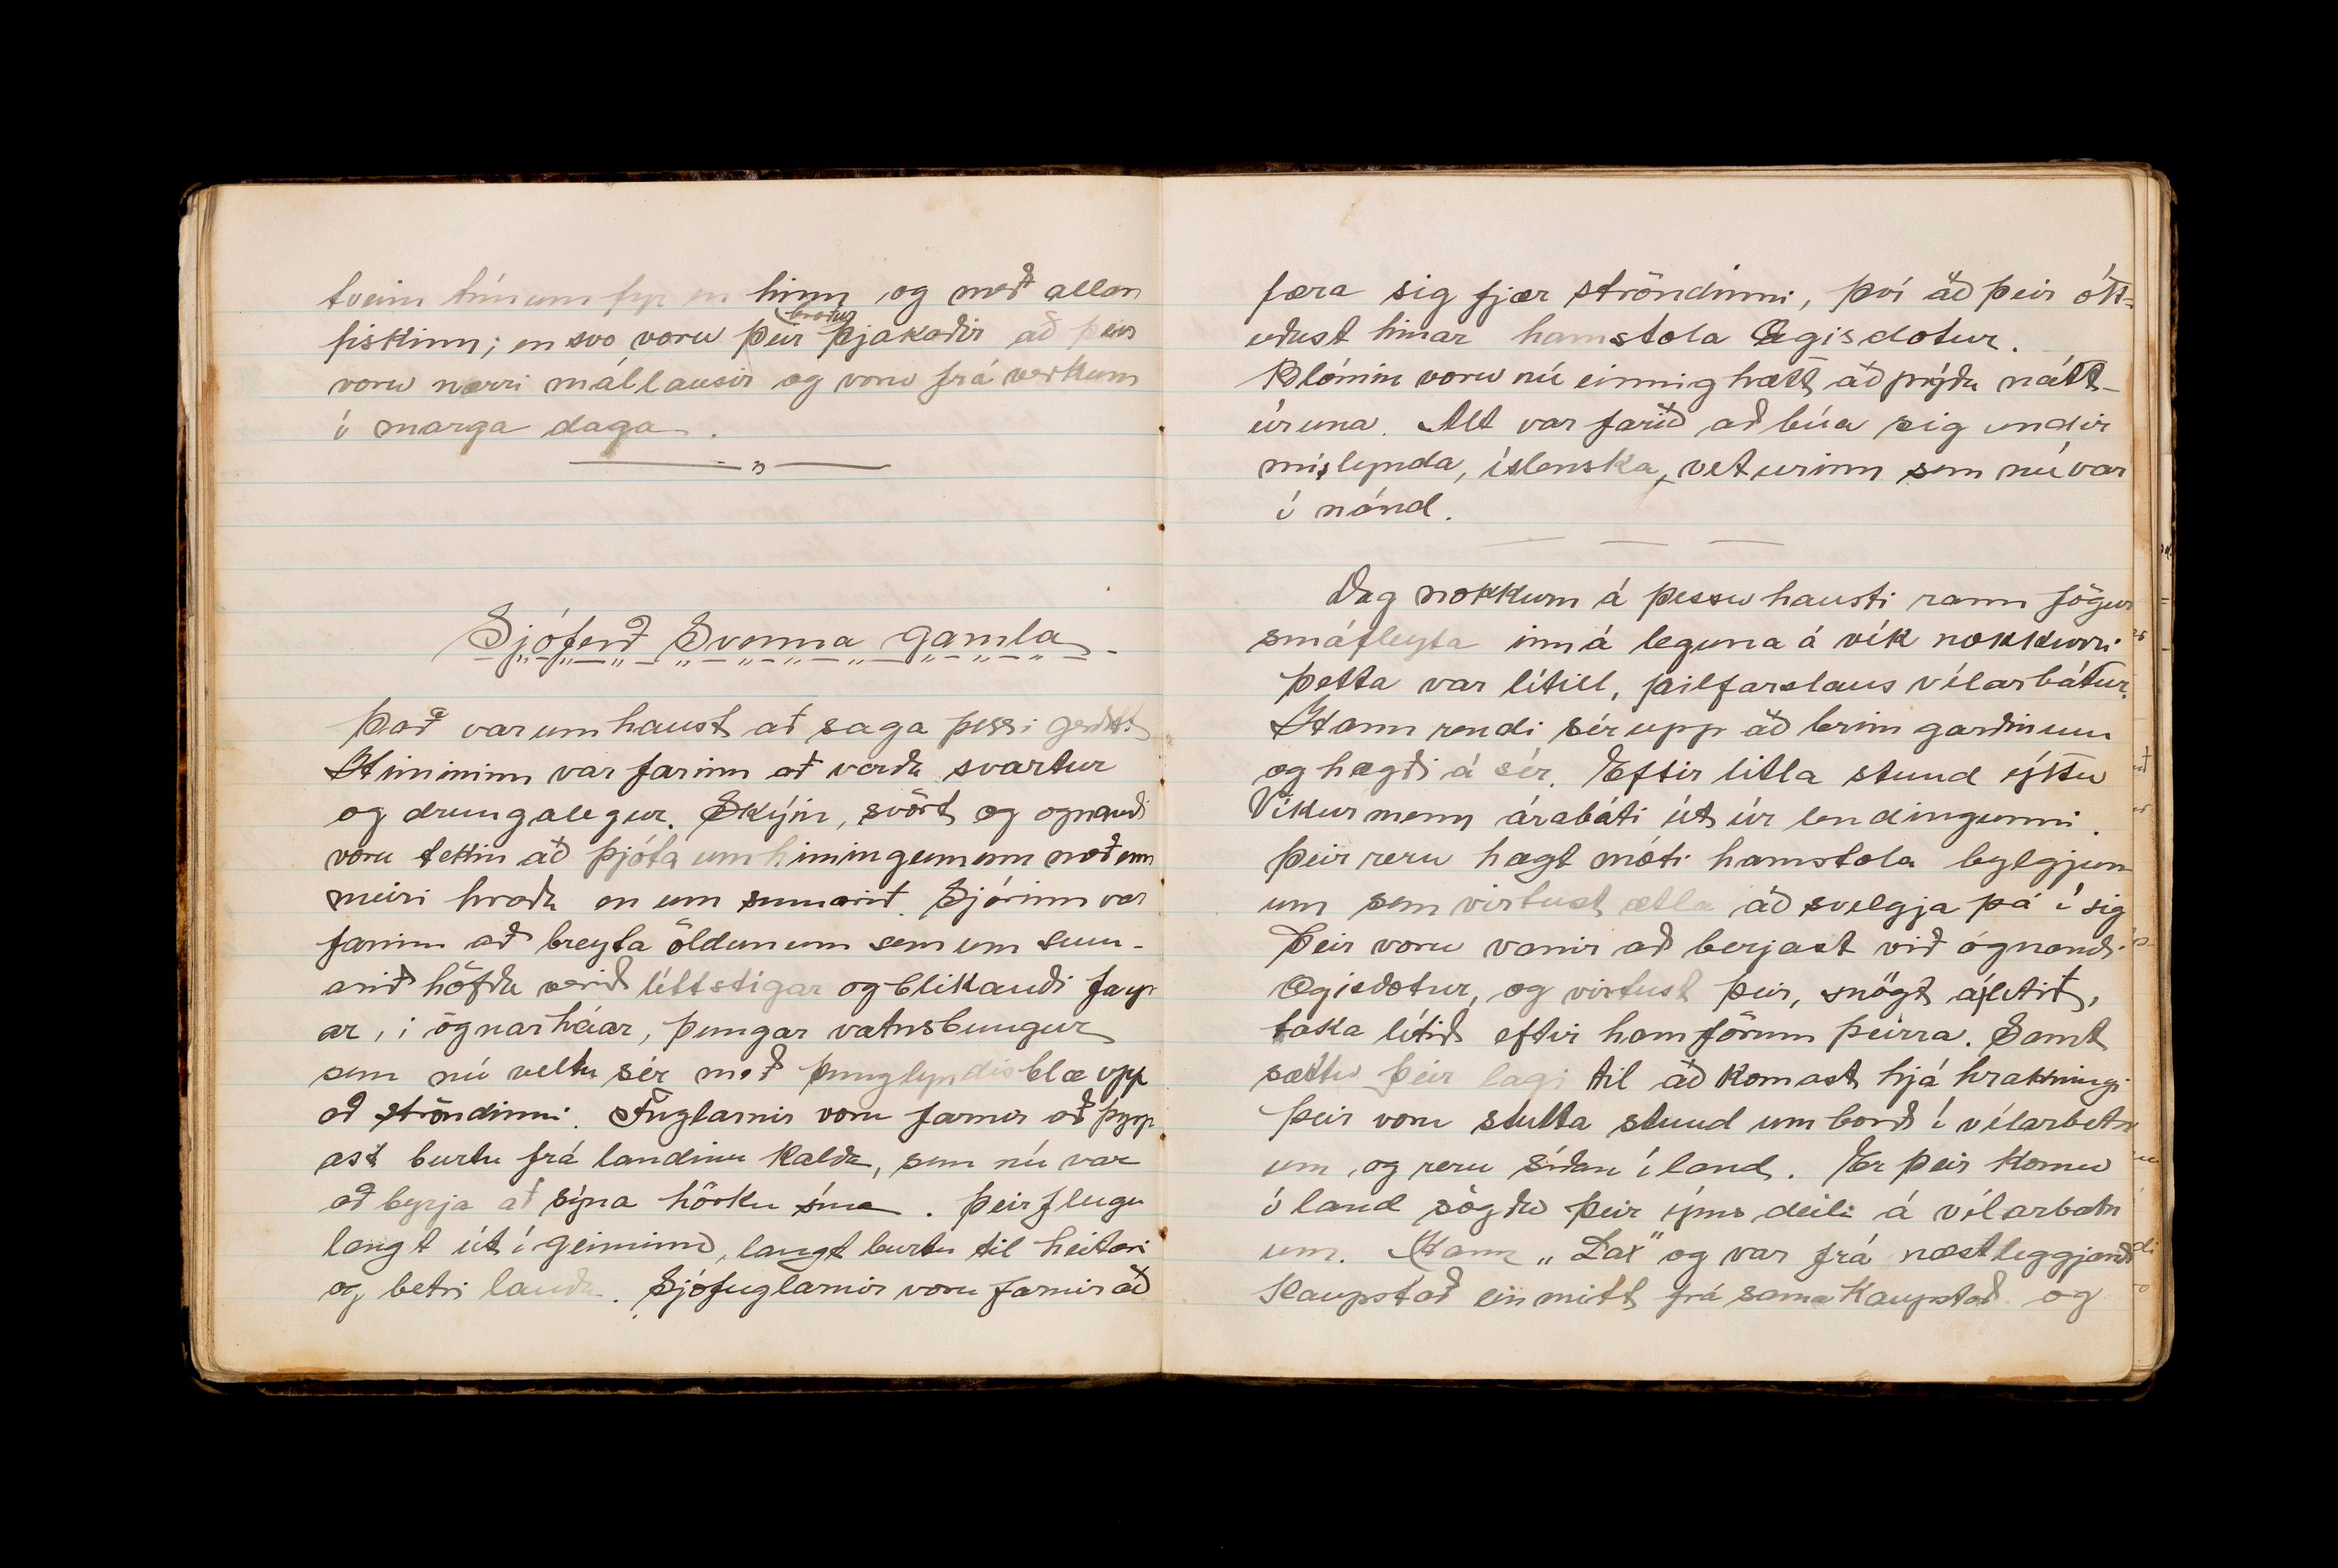 tveim tímum fyr en hinn og með allan
fiskinn; en svo voru þeir bræður þjakaðir að þeir
voru nærri mállausir og voru frá verkum
í marga daga.
Sjóferð Svenna gamla.
Það var um haust að saga þessi gerðist.
Himininn var farinn að verða svartur
og drungalegur. Skýin, svört og ógnandi
voru tekin að þjóta um himingeiminn með enn
meiri hraða en um sumarið. Sjórinn var
farinn að breyta öldunum sem um sum-
arið höfðu verið léttstígar og blikandi fagr
ar, í ógnarháar, þungar vatnsbungur
sem nú veltu sér með þunglyndisblæ upp
að ströndinni. Fuglarnir voru farnir að þyrp
ast burtu frá landinu kalda, sem nú var
að byrja að sýna hörku sína. Þeir flugu
langt út í geiminn, langt burtu til heitari
og betri landa. Sjófuglarnir voru farnir að
færa sig fjær ströndinni, því að þeir ótt-
uðust hinar hamstola Ægisdætur.
Blómin voru nú einnig hætt að prýða nátt-
úruna. Alt var farið að búa sig undir
mislynda, íslenska, veturinn sem nú var
í nánd.
Dag nokkurn á þessu hausti rann fögur
smáfleyta inn á leguna á vík nokkurri
Þetta var lítill, þilfarslaus vélarbátur.
Hann rendi sér upp að brimgarðinum
og hægði á sér. Eftir litla stund ýttu
Víkurmenn árabáti út úr lendingunni.
Þeir reru hægt móti hamstola bylgjun
um sem virtust ætla að svelgja þá í sig
Þeir voru vanir að berjast við ógnandi
Ægisdætur, og virtust þeir, snögt álitið,
taka lítið eftir hamförum þeirra. Samt
sættu þeir lagi til að komast hjá hrakningi
Þeir voru stutta stund um borð í vélarbátn
um, og reru síðan í land. Er þeir komu
í land sögðu þeir ýms deili á vélarbátn
um. Hann „Lax" og var frá næstleggjandi
Kaupstað einmitt frá sama Kaupstað og